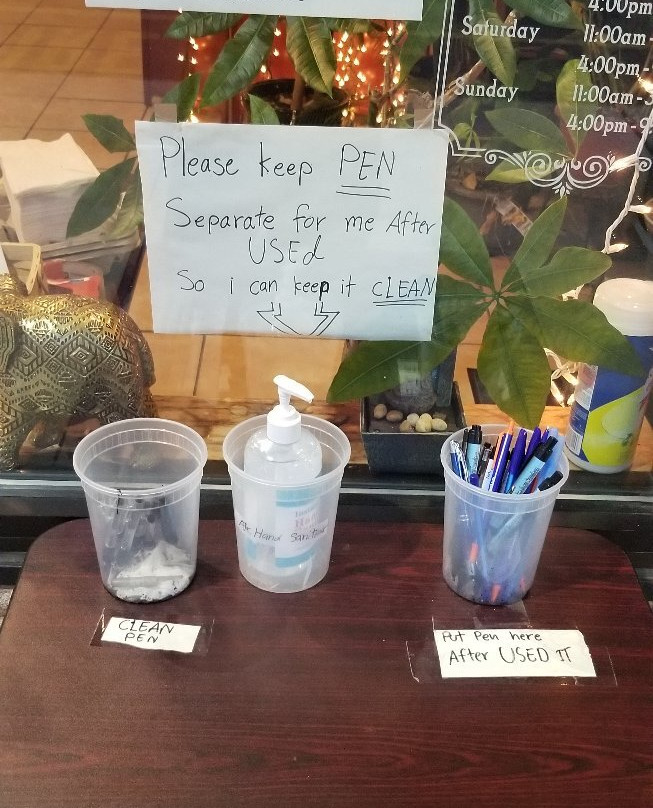 4:00pm
Saturday 11:00am-
4:00pm-
Sunday 11:00am-3
4:00pm-9
Please keep PEN
Separate for me After
USEd
So i can keep it CLEAN
For Hand Sanitizer
CLEAN
PEN
Put Pen here
After USED IT